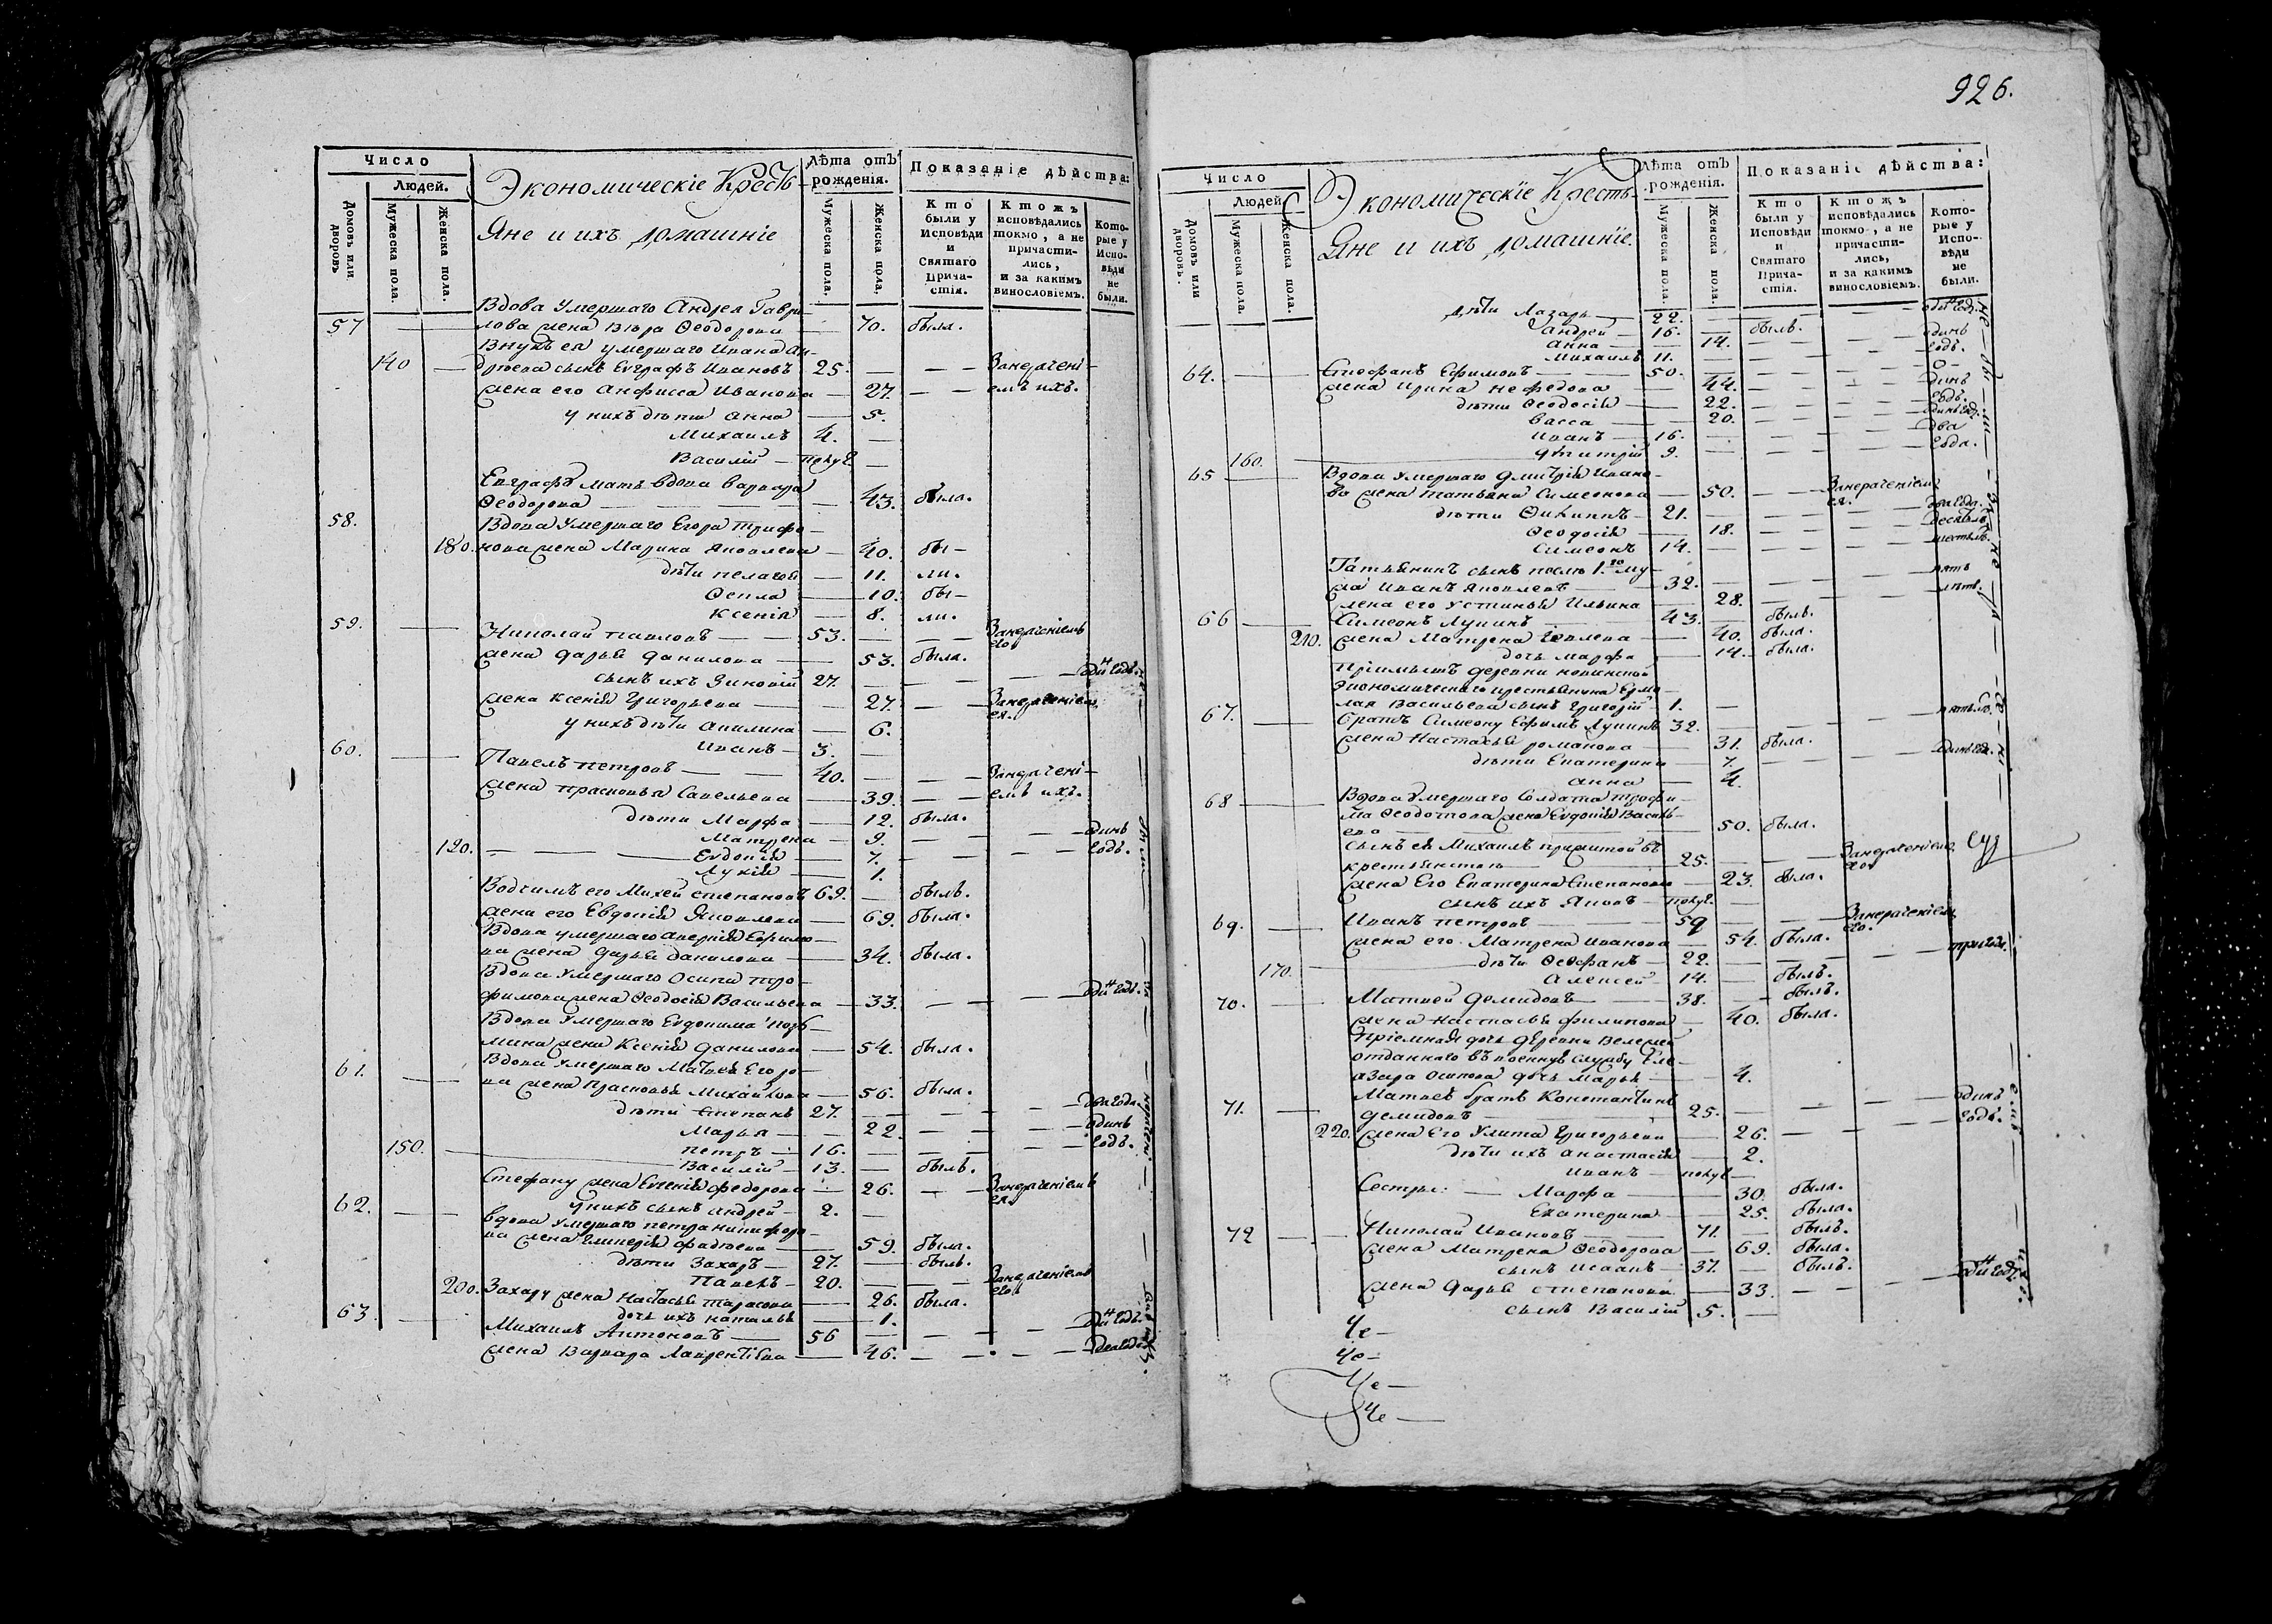 926.
Число
Людей.
Домовъ или дворовъ.
Мужеска пола.
Женска пола.
Экономическіе Кресть-
Яне и ихъ домашніе
Лѣта отъ рожденія.
Мужеска пола.
Женска пола.
Показаніе дѣйства:
Кто были у Исповѣди и Святаго Прича-стія.
Ктожъ исповѣдались токмо, а не причасти-лись, и за какимъ винословіемъ.
Кото-рые у Испо-вѣди не были.
Вдова Умершаго Андрея Гаври-
57 лова жена Ѳеодорова 70. была.
Внукъ ея умершаго Ивана Ан-
140 дреева сынъ Евграфъ Ивановъ 25.
жена его Анфиса Иванова 27. емъ ихъ.
у нихъ дѣти Анна 5.
Михаилъ 4.
Василій
Евграфа мать вдова Варвара
Ѳеодорова 43. была.
58. Вдова Умершаго Егора Трифо-
180. нова жена Марина Яковлева 40. бы-
дѣти Пелагея 11. ли.
Ѳекла 10. бы-
Ксенія 8. ли.
59. Николай Павловъ 53.
жена Дарья Данилова 53. была.
сынъ ихъ Зиновій 27.
жена Ксенія Григорьева 27.
у нихъ дѣти Акилина 6.
Иванъ 3.
60. Павелъ Петровъ 40.
жена Прасковья Савельева 39. емъ ихъ.
дѣти Марфа 12. была.
Матрена 9. одинъ
120. Евдокія 7. годъ.
Лукія 1.
Вотчимъ его Михей Степановъ 69. былъ.
жена его Евдокія Яковлева 69. была.
Вдова умершаго
жена Дарья Данилова 34. была.
Вдова Умершаго Осипа Тро-
фимова жена Ѳеодосія Васильева 33.
Вдова Умершаго Евдокима
жена Ксенія Данилова 54. была.
61. Вдова Умершаго Матвея Егоро-
ва жена Прасковья Михайлова 56. была.
дѣти Степанъ 27. два года.
Марья 22. одинъ
Петръ 16. годъ.
150. Василій 13. былъ.
Стефану жена Евгенія Федорова 26.
у нихъ сынъ Андрей 2.
62. вдова Умершаго Петра Никифоро-
ва жена Гликерія Фадѣева 59. была.
дѣти Захаръ 27. былъ.
Павелъ 20.
200. Захару жена Настасья Тарасова 26. была.
дочь ихъ Наталья 1.
63. Михаилъ Антоновъ 56
жена Варвара Лаврентьева 46.
Число
Людей
Домовъ или дворовъ.
Мужеска пола.
Женска пола.
Экономическіе Кресть-
Яне и ихъ домашніе.
Лѣта отъ рожденія.
Мужеска пола.
Женска пола.
Показаніе дѣйства:
Кто были у Исповѣди и Святаго Прича-стія.
Ктожъ исповѣдались токмо, а не причасти-лись, и за какимъ винословіемъ.
Кото-рые у Испо-вѣди не были.
дѣти Лазарь 22.
Андрей 16. былъ. одинъ
Анна 14. годъ.
Михаилъ 11.
64. Стефанъ Ефимовъ 50. о-
жена Ирина Нефедова 44. динъ
дѣти Ѳеодосія 22. годъ.
Васса 20.
Иванъ 16. два
160. Дмитрій 9. года.
65 Вдова Умершаго Дмитрія Ивано-
ва жена Татьяна Симеонова 50. Занераченіемъ ея.
дѣти Филиппъ 21. два года.
Ѳеодосія 18.
Симеонъ 14.
Татьянинъ сынъ после 1.го му-
жа Иванъ Яковлевъ 32. пять
жена его Устинья Ильина 28. лѣтъ.
66 Симеонъ Лукинъ 43. былъ.
210. жена Матрена 40. была.
дочь Марфа 14. была.
Пріимышъ деревни
Экономическаго крестьянина Ермо-
лая Васильева сынъ Григорій 1.
67. братъ Симеону Ефимъ Лукинъ 32.
жена Настасья Романова 31. была.
дѣти Екатерина 7.
Анна 4.
68 Вдова Умершаго Солдата Трофи-
ма жена Евдокія Василь-
ева 50. была.
сынъ ея Михаилъ
крестьянстве 25.
жена Его Екатерина Степанова 23. была.
сынъ ихъ Яковъ
69. Иванъ Петровъ 59
жена его Матрена Иванова 54. была.
дѣти Стефанъ 22. три года.
170. Алексей 14. былъ.
70. Матвей Демидовъ 38. былъ.
жена Настасья Филипова 40. была.
Пріемная дочь деревни
отданнаго въ военную службу Еле-
азара Осипова дочь Марья 4.
71. Матвею братъ Константинъ
Демидовъ 25. одинъ
220. жена Его Улита Григорьева 26. годъ.
дѣти ихъ Анастасія 2.
Иванъ
Сестры: Марфа 30. была.
Екатерина 25. была.
72 Николай Ивановъ 71. былъ.
жена Матрена Ѳеодорова 69. была.
сынъ Исаакъ 37. былъ.
жена Дарья Степанова 33.
сынъ Василій 5.